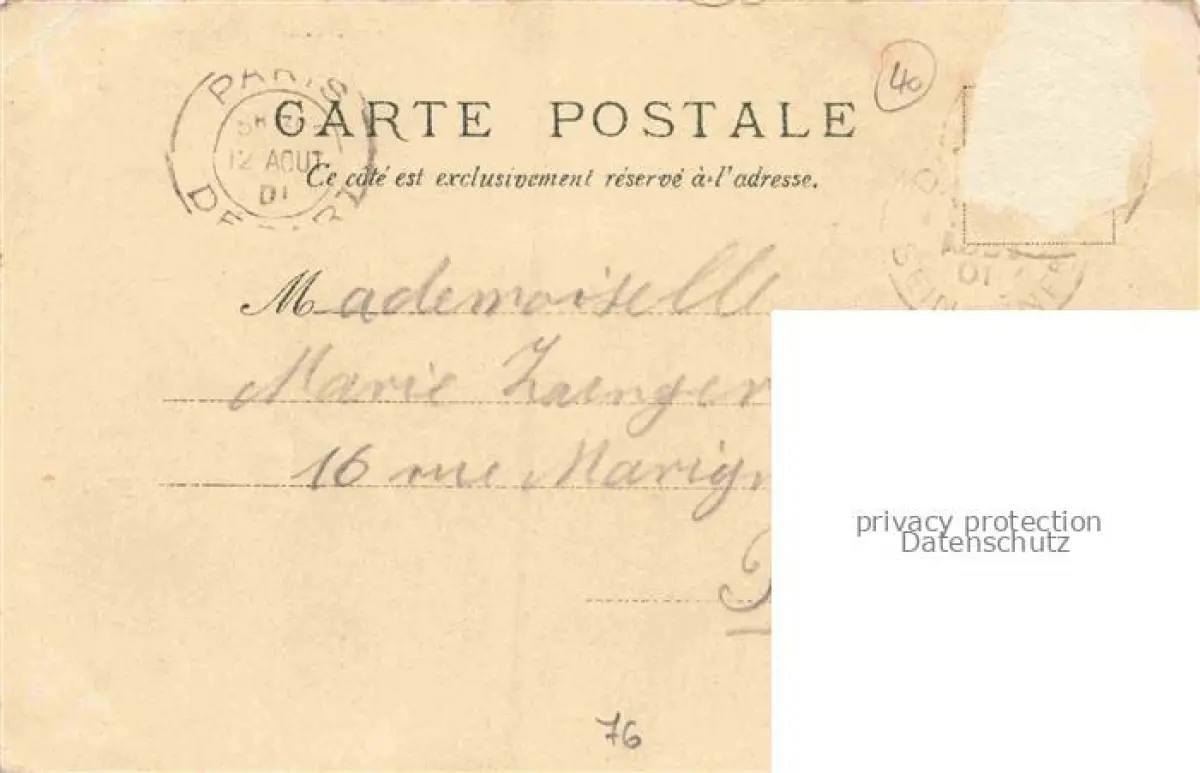 PARIS
12 AOUT
01
DEPART
40
CARTE POSTALE
Ce côté est exclusivement réservé à l'adresse.
01
Mademoiselle
Marie Zaenger
16 rue Marign
privacy protection
Datenschutz
76